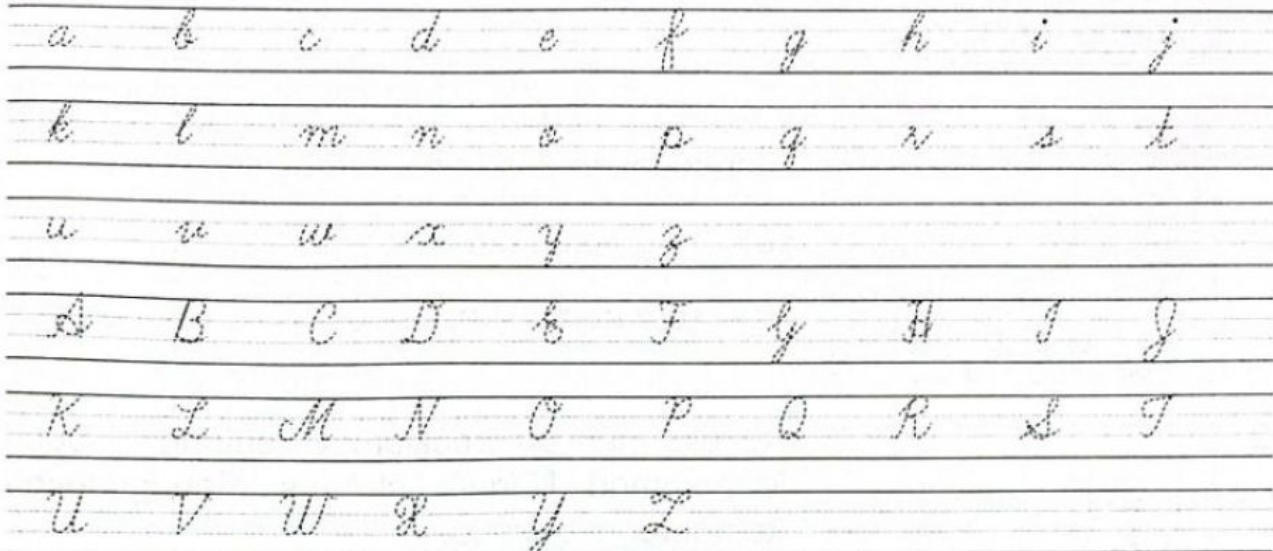 a b c d e f g h i j
k l m n o p q r s t
u v w x y z
A B C D E F G H I J
K L M N O P Q R S T
U V W X Y Z